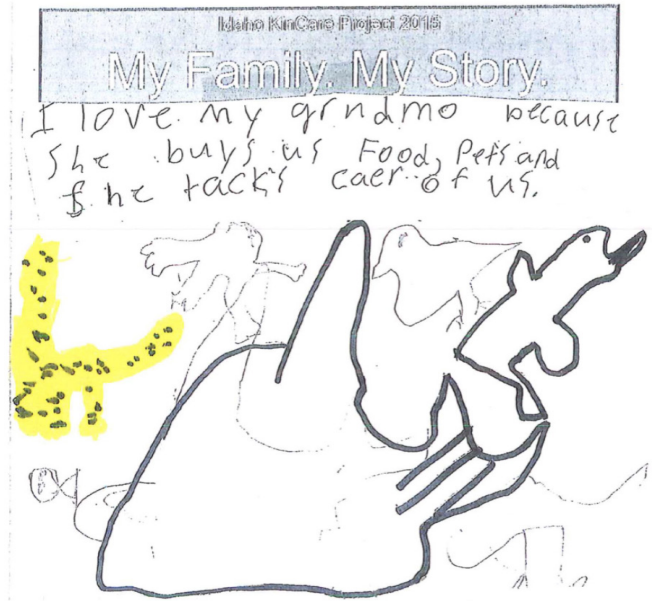 Idaho KinCare Project 2015
My Family. My Story.
I love my grndmo because
she buys us Food, Pets and
she tack's caer of us.